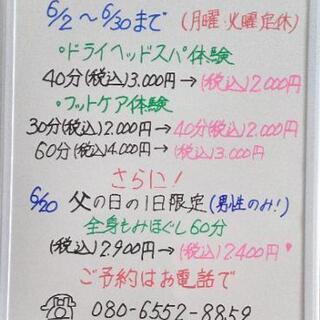 6/2~6/30まで (月曜・火曜定休)
°ドライヘッドスパ体験
40分(税込)3.000円→(税込)2.000円
°フットケア体験
30分(税込)2.000円→40分(税込)2.000円
60分(税込)4.000円→(税込)3.000円
さらに!
6/20 父の日の1日限定(男性のみ!)
全身もみほぐし60分
(税込)2.900円→(税込)2400円
ご予約はお電話で
☎ 080-6552-8859